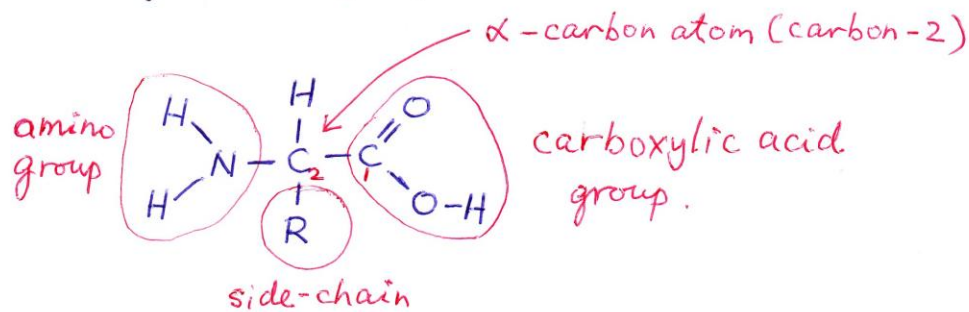 α-carbon atom (carbon-2)
amino
group
H
H
N
H
C
2
R
C
1
O
O-H
carboxylic acid
group.
side-chain